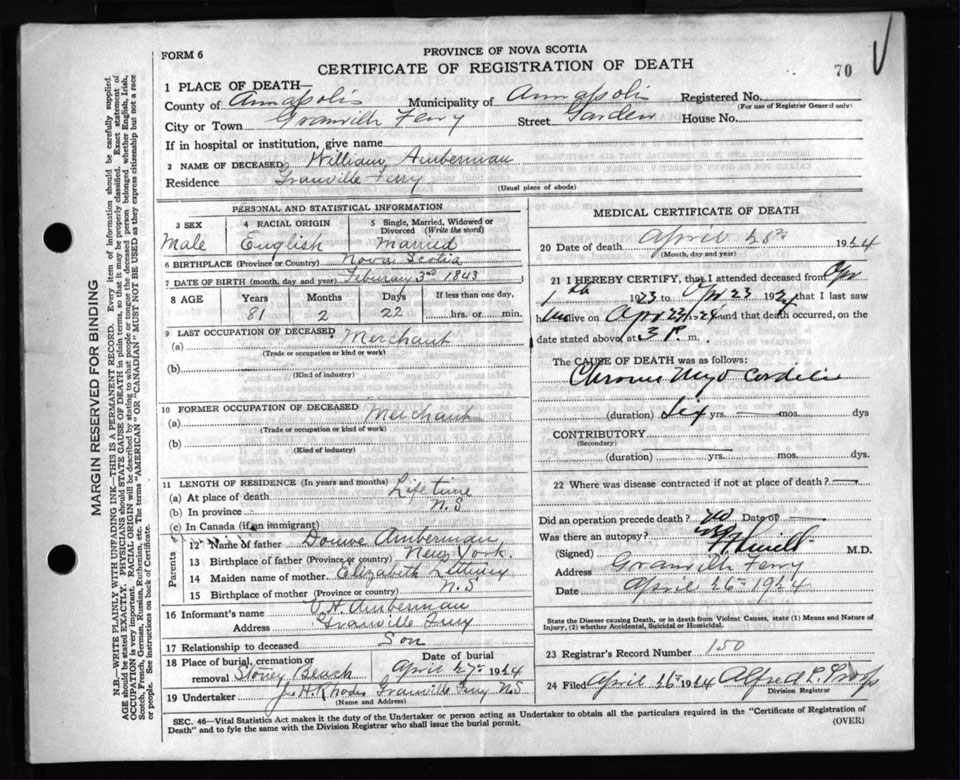 FORM 6
PROVINCE OF NOVA SCOTIA
CERTIFICATE OF REGISTRATION OF DEATH
70
1 PLACE OF DEATH—
County of Annapolis Municipality of Annapolis Registered No.
(For use of Registrar General only)
City or Town Granville Ferry Street Garden House No.
If in hospital or institution, give name
2 NAME OF DECEASED William Amberman
Residence Granville Ferry
(Usual place of abode)
PERSONAL AND STATISTICAL INFORMATION
3 SEX 4 RACIAL ORIGIN 5 Single, Married, Widowed or Divorced (Write the word)
Male English Married
6 BIRTHPLACE (Province or Country) Nova Scotia
7 DATE OF BIRTH (month, day and year) 3rd 1843
8 AGE Years Months Days If less than one day,
81 2 22 hrs. or min.
9 LAST OCCUPATION OF DECEASED
(a) Merchant
(Trade or occupation or kind or work)
(b)
(Kind of industry)
10 FORMER OCCUPATION OF DECEASED
(a) Merchant
(Trade or occupation or kind or work)
(b)
(Kind of industry)
11 LENGTH OF RESIDENCE (In years and months)
(a) At place of death Lifetime
(b) In province N.S
(c) In Canada (if an immigrant)
Parents
12 Name of father Douwe Amberman
13 Birthplace of father (Province or country) New York.
14 Maiden name of mother Elizabeth
15 Birthplace of mother (Province or country) N.S
16 Informant's name Amberman
Address Granville Ferry
17 Relationship to deceased Son
18 Place of burial, cremation or removal Stoney Beach Date of burial April 27th 1924
19 Undertaker J. H. Rhodes Granville Ferry N.S
(Name and Address)
MEDICAL CERTIFICATE OF DEATH
20 Date of death April 25th 1924
(Month, day and year)
21 I HEREBY CERTIFY, that I attended deceased from Apr
1 1923 to Apr 23 1924 that I last saw
h im alive on Apr 23 1924 and that death occurred, on
date stated above, at 3 P. m.
The CAUSE OF DEATH was as follows:
Chronic Myo
(duration) Six yrs. mos. dys
CONTRIBUTORY
(Secondary)
(duration) yrs. mos. dys.
22 Where was disease contracted if not at place of death?
Did an operation precede death? no Date of
Was there an autopsy? no
(Signed) M.D.
Address Granville Ferry
Date April 26th 1924
State the Disease causing Death, or in death from Violent Causes, state (1) Means and Nature of Injury, (2) whether Accidental, Suicidal or Homicidal.
23 Registrar's Record Number 150
24 Filed April 26th 1924 Alfred
Division Registrar
SEC. 46—Vital Statistics Act makes it the duty of the Undertaker or person acting as Undertaker to obtain all the particulars required in the "Certificate of Registration of
Death" and to fyle the same with the Division Registrar who shall issue the burial permit. (OVER)
MARGIN RESERVED FOR BINDING
N.B.—WRITE PLAINLY WITH UNFADING INK—THIS IS A PERMANENT RECORD. Every item of information should be carefully supplied.
AGE should be stated EXACTLY. PHYSICIANS should STATE CAUSE OF DEATH in plain terms, so that it may be properly classified. Exact statement of
OCCUPATION is very important. RACIAL ORIGIN will be described by stating to what people or tongue the deceased person belonged, whether English, Irish,
Scotch, French, German, Russian, Ruthenian, etc. The terms "AMERICAN" OR "CANADIAN" MUST NOT BE USED as they express citizenship but not a race
or people. See instructions on back of Certificate.